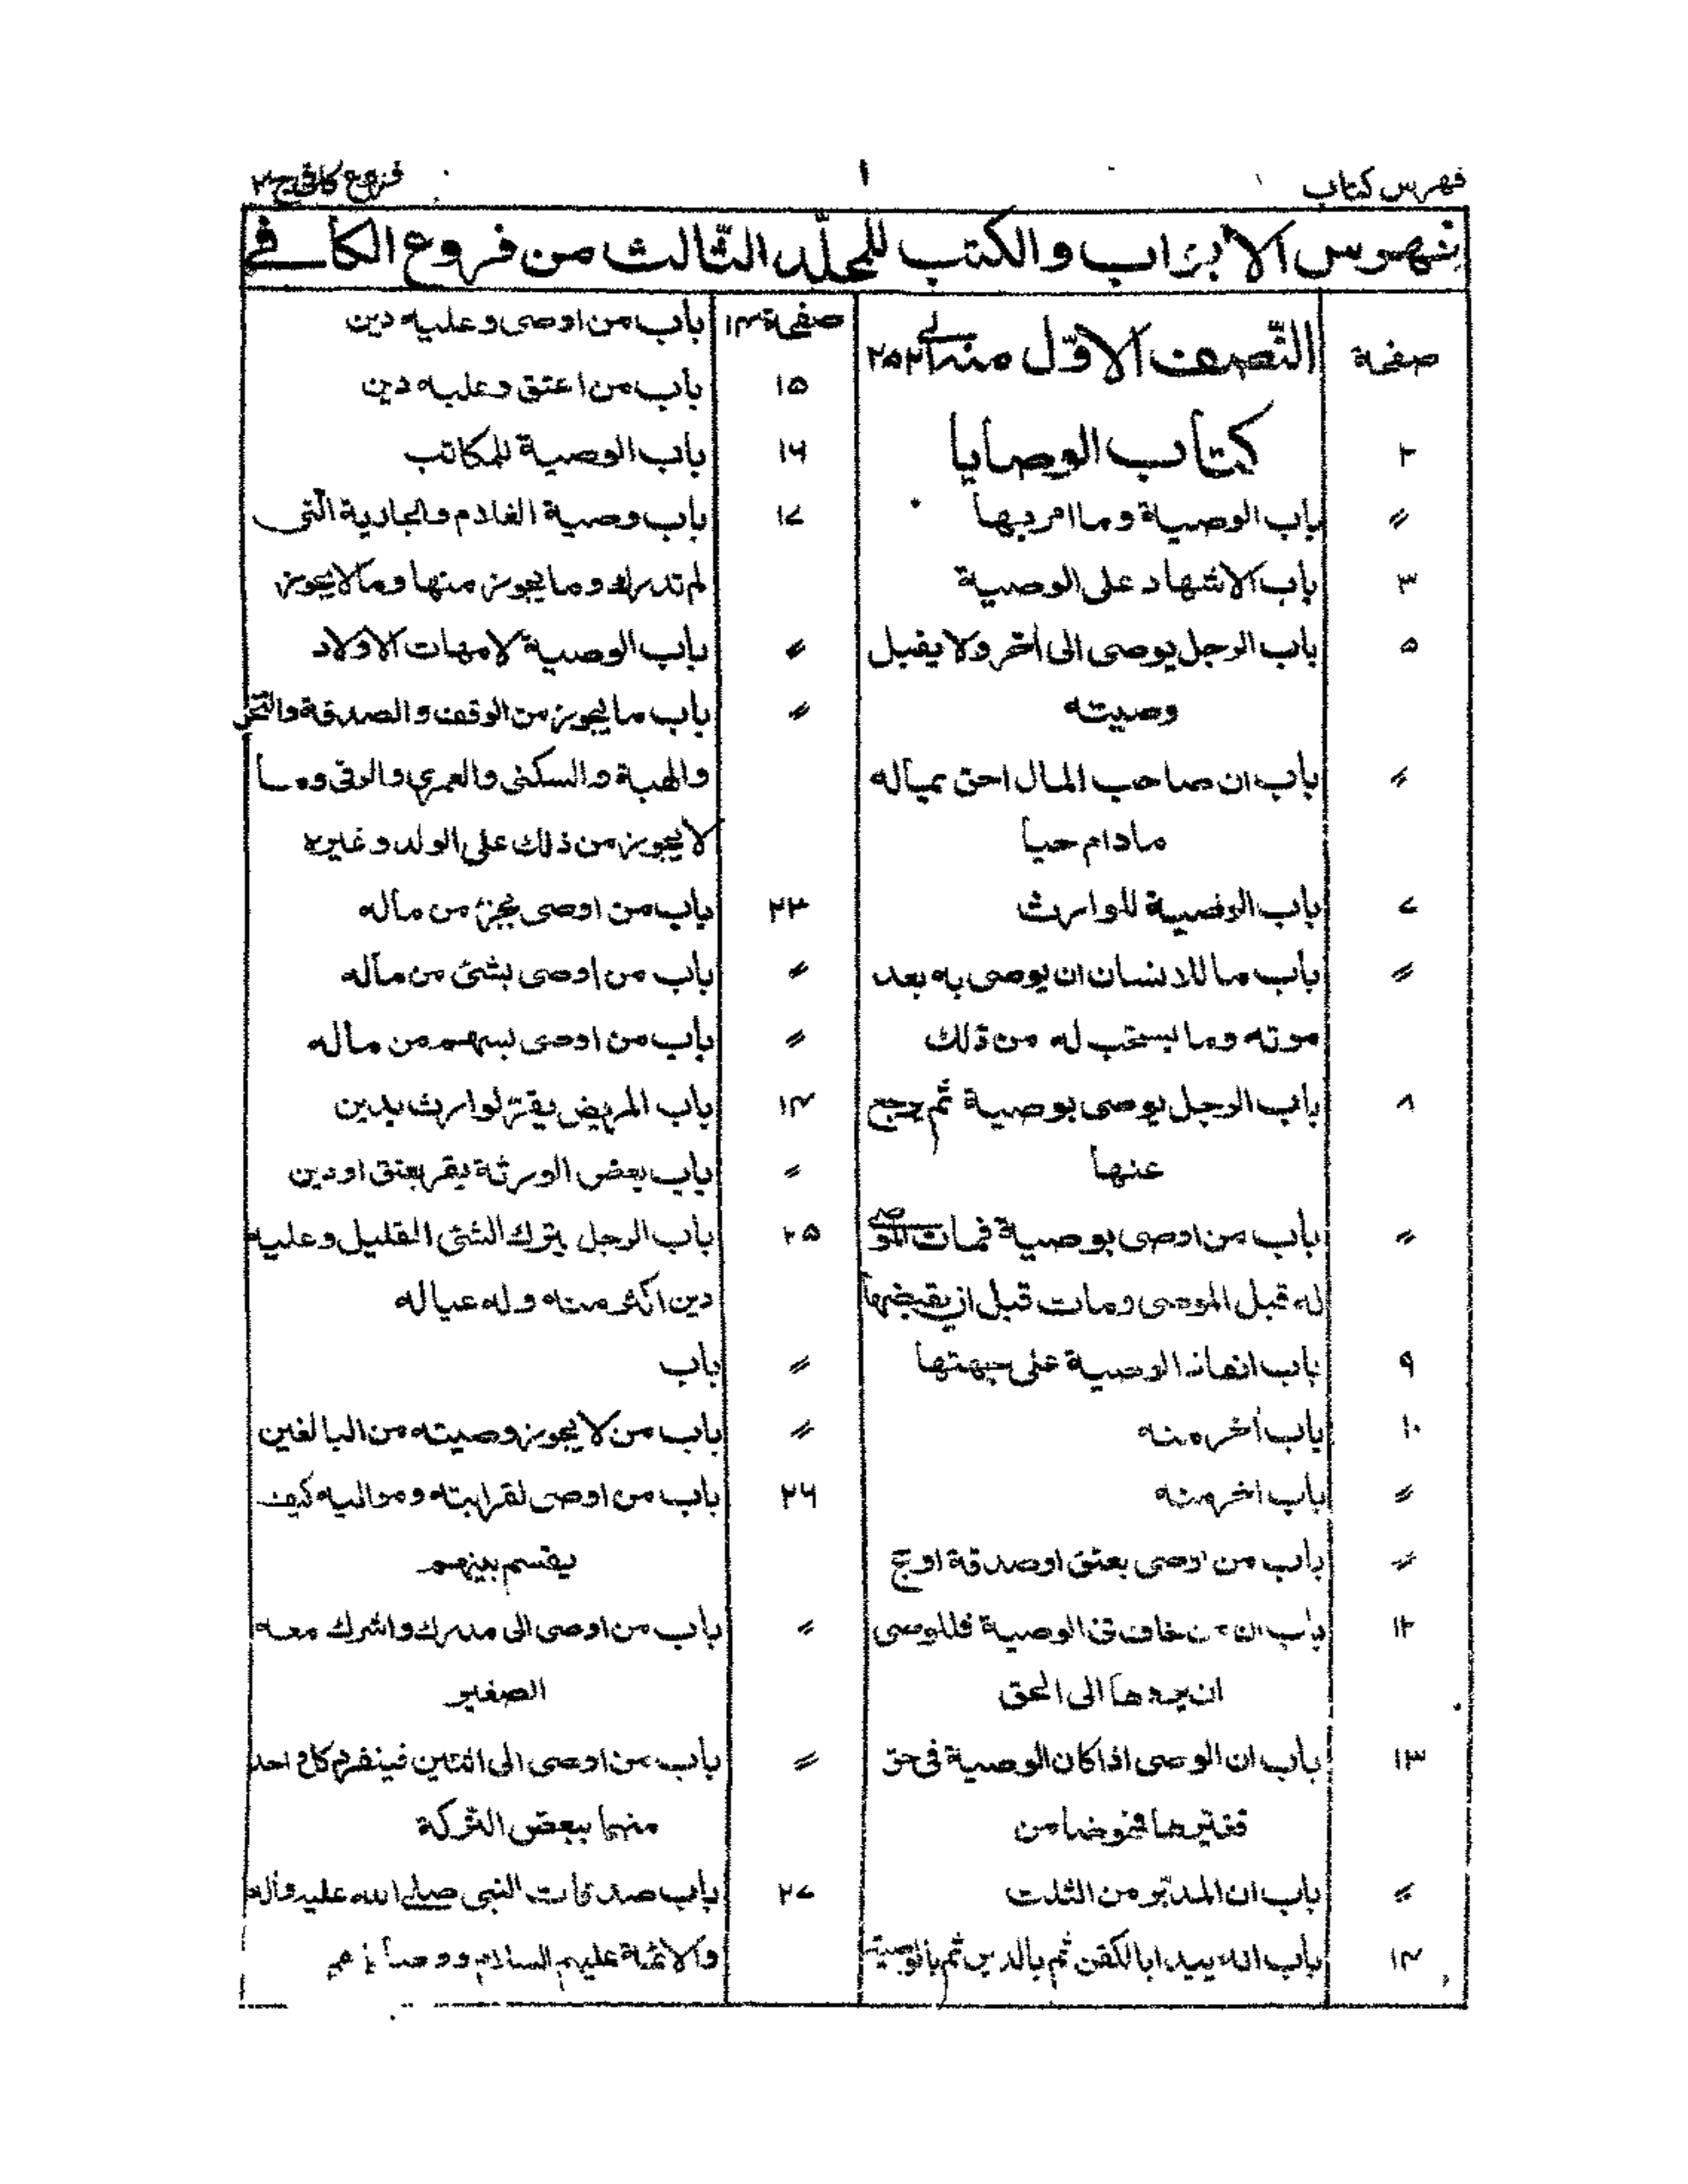 فهرس كتاب
١
فروع كافي ج ٣
فهرس الابواب والكتب للمجلّد الثّالث من فروع الكافي
صفحة
النّصف الاوّل منه الى ٢٥٢
٢ كتاب الوصايا
〃 باب الوصية وما امر بها
٣ باب الاشهاد على الوصية
٥ باب الرجل يوصى الى أخر ولا يقبل
وصيته
〃 باب ان صاحب المال احق بماله
مادام حيا
٧ باب الوصية للوارث
〃 باب ما للانسان ان يوصى به بعد
موته وما يستحب له من ذلك
٨ باب الرجل يوصى بوصية ثم يرجع
عنها
〃 باب من اوصى بوصية فمات الموصى
له قبل الموصى ومات قبل ان يقبضها
٩ باب انفاذ الوصية على جهتها
١٠ باب أخر منه
〃 باب اخر منه
〃 باب من اوصى بعتق او صدقة او حج
١٢ باب ان من خاف فى الوصية فللوصى
ان يردها الى الحق
١٣ باب ان الوصى اذا كان الوصية فى حق
فغيّرها فهو ضامن
〃 باب ان المدبّر من الثلث
١٣ باب انه يبدا بالكفن ثم بالدين ثم بالوصية
صفحة ١٣ باب من اوصى وعليه دين
١٥ باب من اعتق وعليه دين
١٦ باب الوصية للمكاتب
١٧ باب وصية الغلام والجارية الّتى
لم تدرك وما يجوز منها وما لا يجوز
〃 باب الوصية لامهات الاولاد
〃 باب ما يجوز من الوقف والصدقة والنحل
والهبة والسكنى والعمرى والرقبى وما
لا يجوز من ذلك على الولد وغيره
٢٣ باب من اوصى بجزء من ماله
〃 باب من اوصى بشئ من ماله
〃 باب من اوصى بسهم من ماله
باب المريض يقرّ لوارث بدين
〃 باب بعض الورثة يقر بعتق او دين
٢٥ باب الرجل يترك الشئ القليل وعليه
دين اكثر منه وله عياله
〃 باب
〃 باب من لا يجوز وصيته من البالغين
٢٦ باب من اوصى لقراباته ومواليه كيف
يقسم بينهم
〃 باب من اوصى الى مدرك واشرك معه
الصغير
〃 باب من اوصى الى اثنين فينفرد كل واحد
منهما ببعض التّركة
٢٧ باب صدقات النبى صلى الله عليه وأله
والائمّة عليهم السلام ووصاياهم